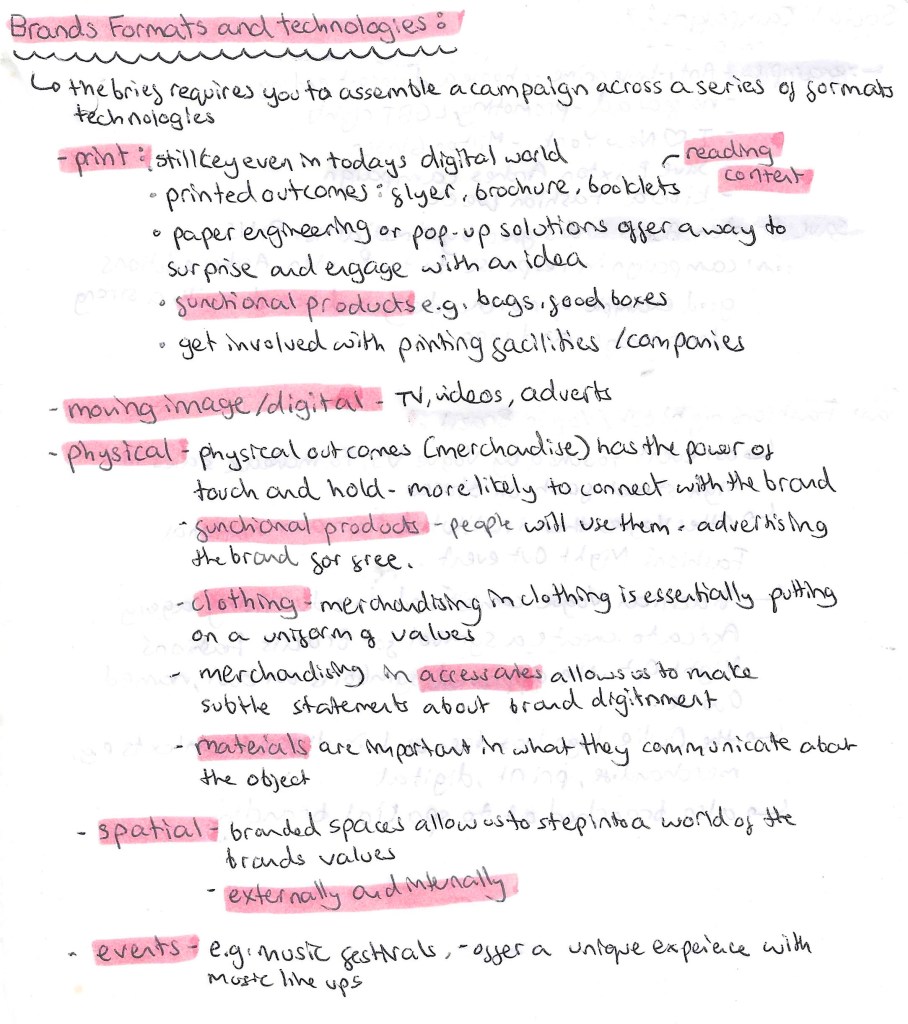 Brands Formats and technologies:
↳ the brief requires you to assemble a campaign across a series of formats
technologies
- print: still key even in todays digital world
reading
content
• printed outcomes: flyer, brochure, booklets
• paper engineering or pop-up solutions offer a way to
surprise and engage with an idea
• functional products e.g. bags, food boxes
• get involved with printing facilities / companies
- moving image/digital - TV, videos, adverts
- physical - physical outcomes (merchandise) has the power of
touch and hold - more likely to connect with the brand
- functional products - people will use them - advertising
the brand for free.
- clothing - merchandising in clothing is essentially putting
on a uniform of values
- merchandising in accessories allows us to make
subtle statements about brand
- materials are important in what they communicate about
the object
- spatial - branded spaces allow us to step into a world of the
brands values
- externally and internally
- events - e.g. music festivals, - offer a unique expeience with
music line ups